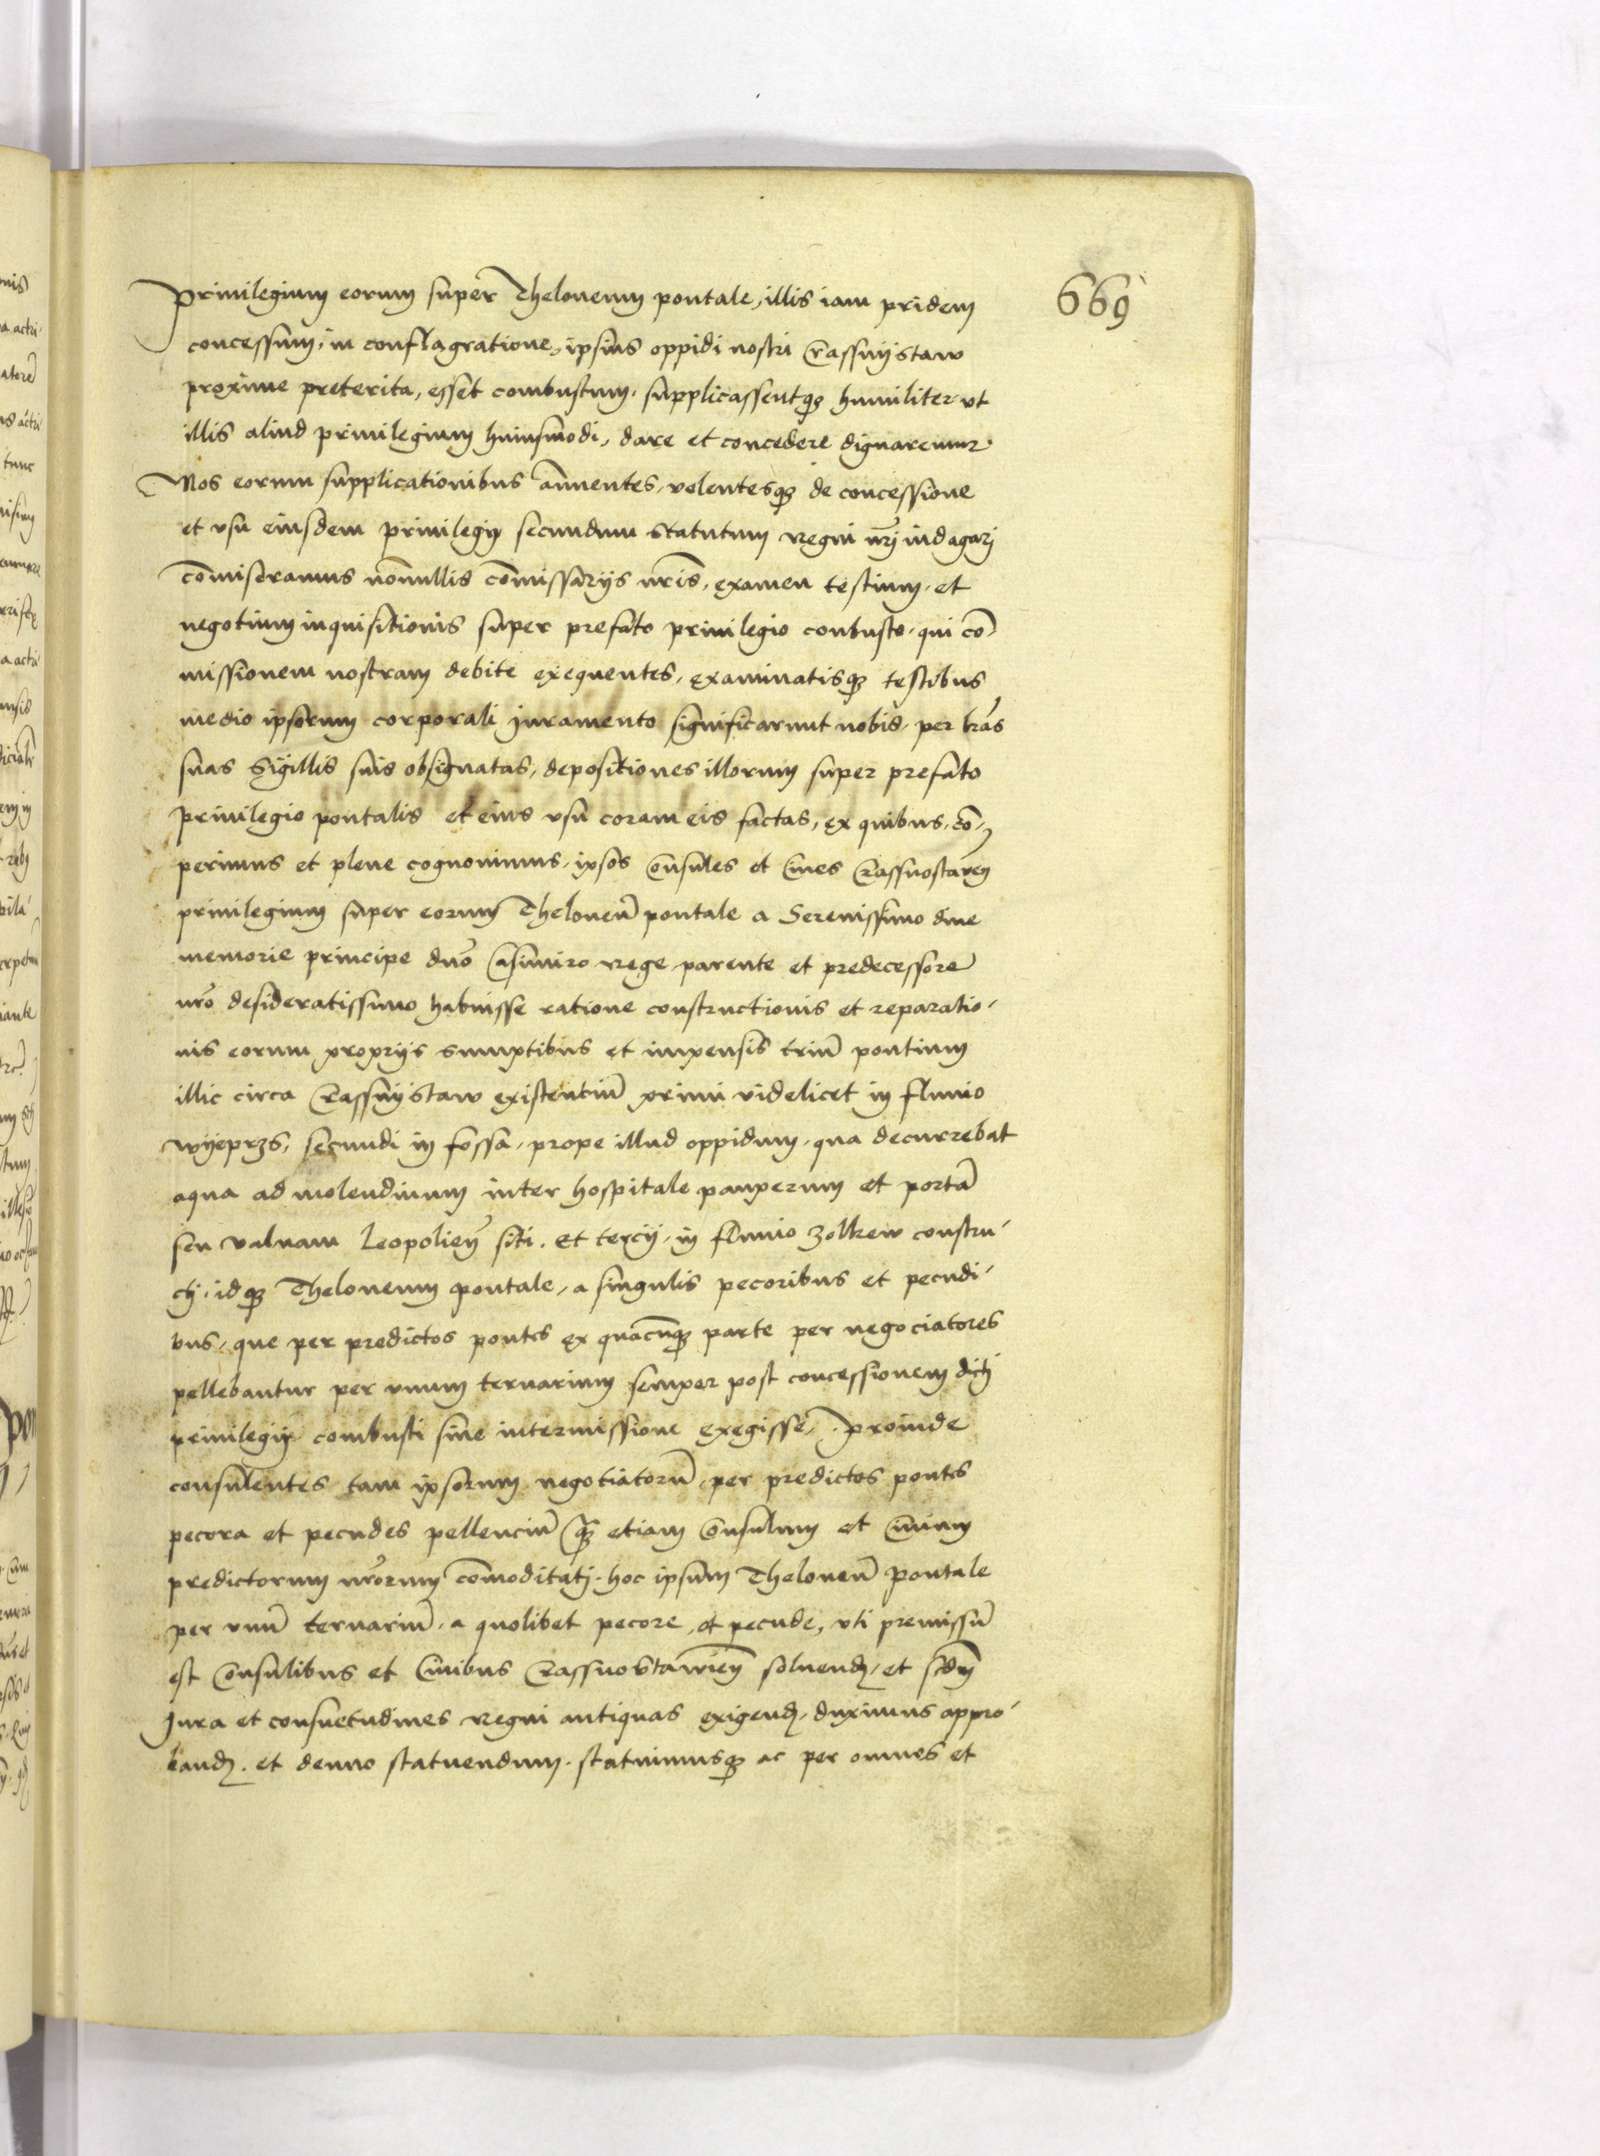 669
Priuilegium eorum super Theloneum pontale, illis iam pridem
concessum, in conflagratione, ipsius oppidi nostri Crassnijstaw
proxime preterita, esset combustum, supplicassentq3 humiliter vt
illis aliud priuilegium huiusmodi, dare et concedere dignaremur.
Nos eorum supplicationibus annuentes, volentesq3 de concessione
et vsu eiusdem priuilegij secundum statutum regni nrj indagarj
comiseramus nonullis comissarijs nris, examen testium, et
negotium inquisitionis super prefato priuilegio conbusto, qui co-
missionem nostram debite exequentes, examinatisq3 testibus
medio ipsorum corporali juramento significarunt nobis, per lras
suas Sigillis suis obsignatas, depositiones illorum super prefato
priuilegio pontalis et eius vsu coram eis factas, ex quibus, co-
perimus et plene cognouimus, ipsos Consules et Ciues Crassnostauien
priuilegium super eorum Theloneu pontale a Serenissimo diue
memorie principe dno Casimiro rege, parente et predecessore
nro desideratissimo habuisse ratione constructionis et reparatio-
nis eorum proprijs sumptibus et impensis triu pontium
illic circa Crassnijstaw existentiu primi videlicet in fluuio
wyeprzs, secundi in fossa, prope illud oppidum, qua decurrebat
aqua ad molendinum inter hospitale pauperum et porta
seu valuam Leopolien siti. Et tercij, in fluuio zolkew constru-
cti, idq3 Theloneum pontale, a singulis pecoribus et pecudi-
bus, que per predictos pontes ex quacunq3 parte per negociatores
pellebantur per vnum ternarium semper post concessionem dicti
priuilegij combusti sine intermissione exegisse, proinde
consulentes tam ipsorum negotiatoru, per predictos pontes
pecora et pecudes pellenciu q3 etiam Consulum et Ciuium
predictorum nrorum comoditatj, hoc ipsum Theloneu pontale
per vnu ternariu, a quolibet pecore, et pecude, vti premissu
est Consulibus et Ciuibus Crassnostawien soluend, et scdm
Jura et consuetudines regni antiquas exigend, duximus appro-
band. et denuo statuendum. statuimusq3 ac per omnes et